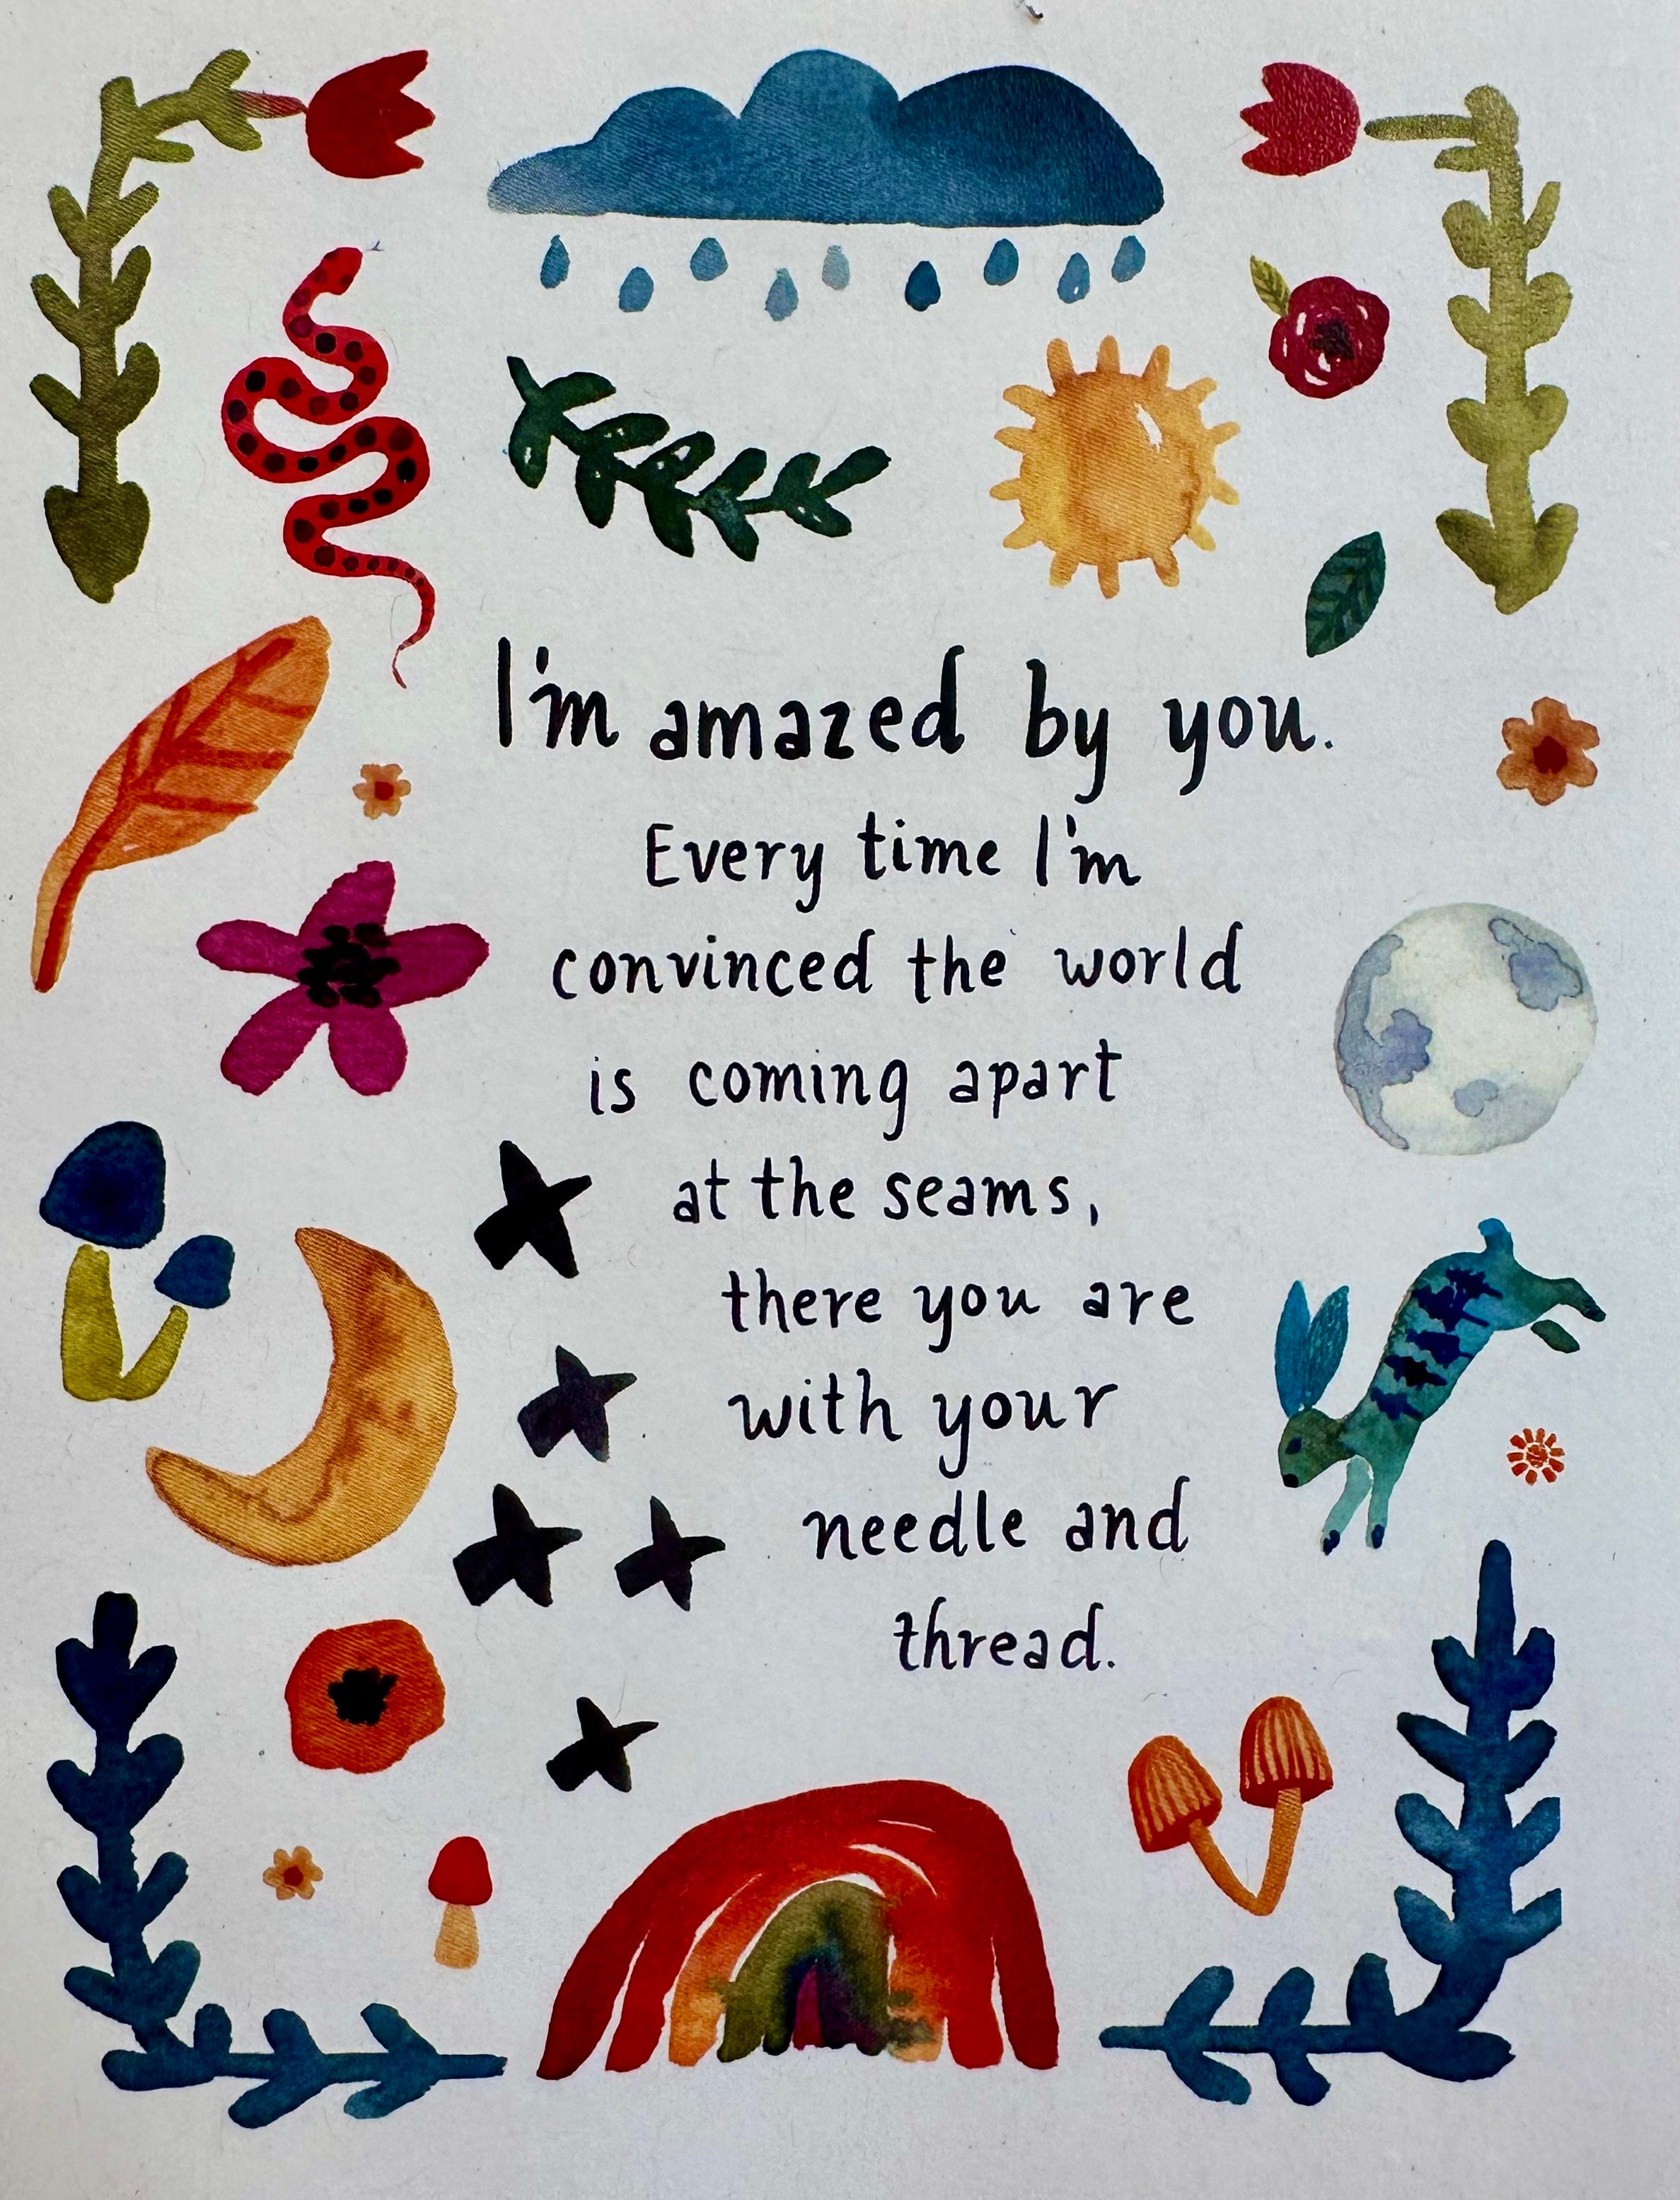 I'm amazed by you.
Every time I'm
convinced the world
is coming apart
at the seams,
there you are
with your
needle and
thread.